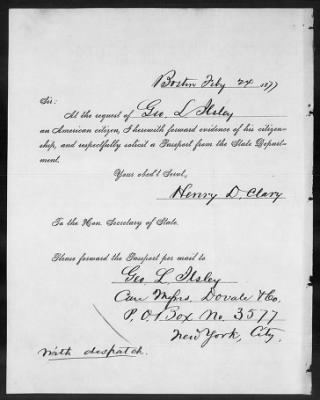 Boston Feby 24 1877
Sir:
At the request of Geo. L Ilsley
an American citizen, I herewith forward evidence of his citizen-
ship, and respectfully solicit a Passport from the State Depart-
ment.
Your obed't Servt,
Henry D. Clary
To the Hon. Secretary of State.
Please forward the Passport per mail to
Geo. L. Ilsley
Care Messrs. Dovale & Co.
P. O. Box No. 3577
New York, City.
With despatch.